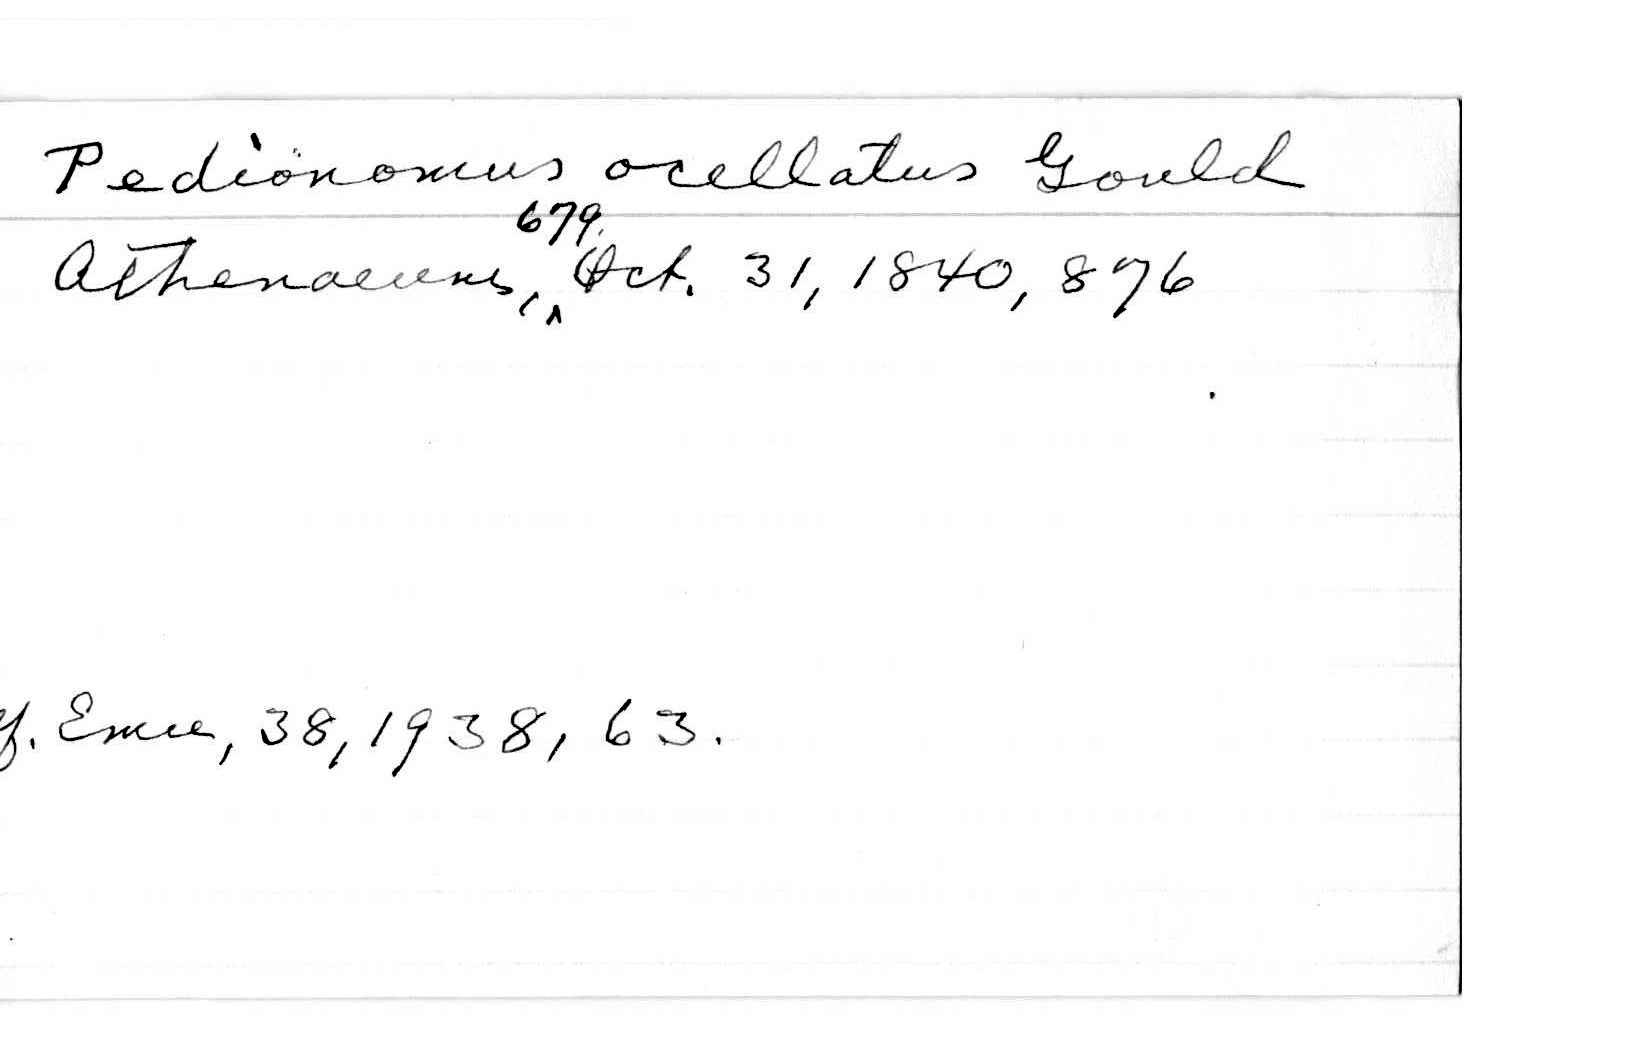 Pedionomus ocellatus Gould
Athenaeum, 679. Oct. 31, 1840, 876
cf. Emu, 38, 1938, 63.